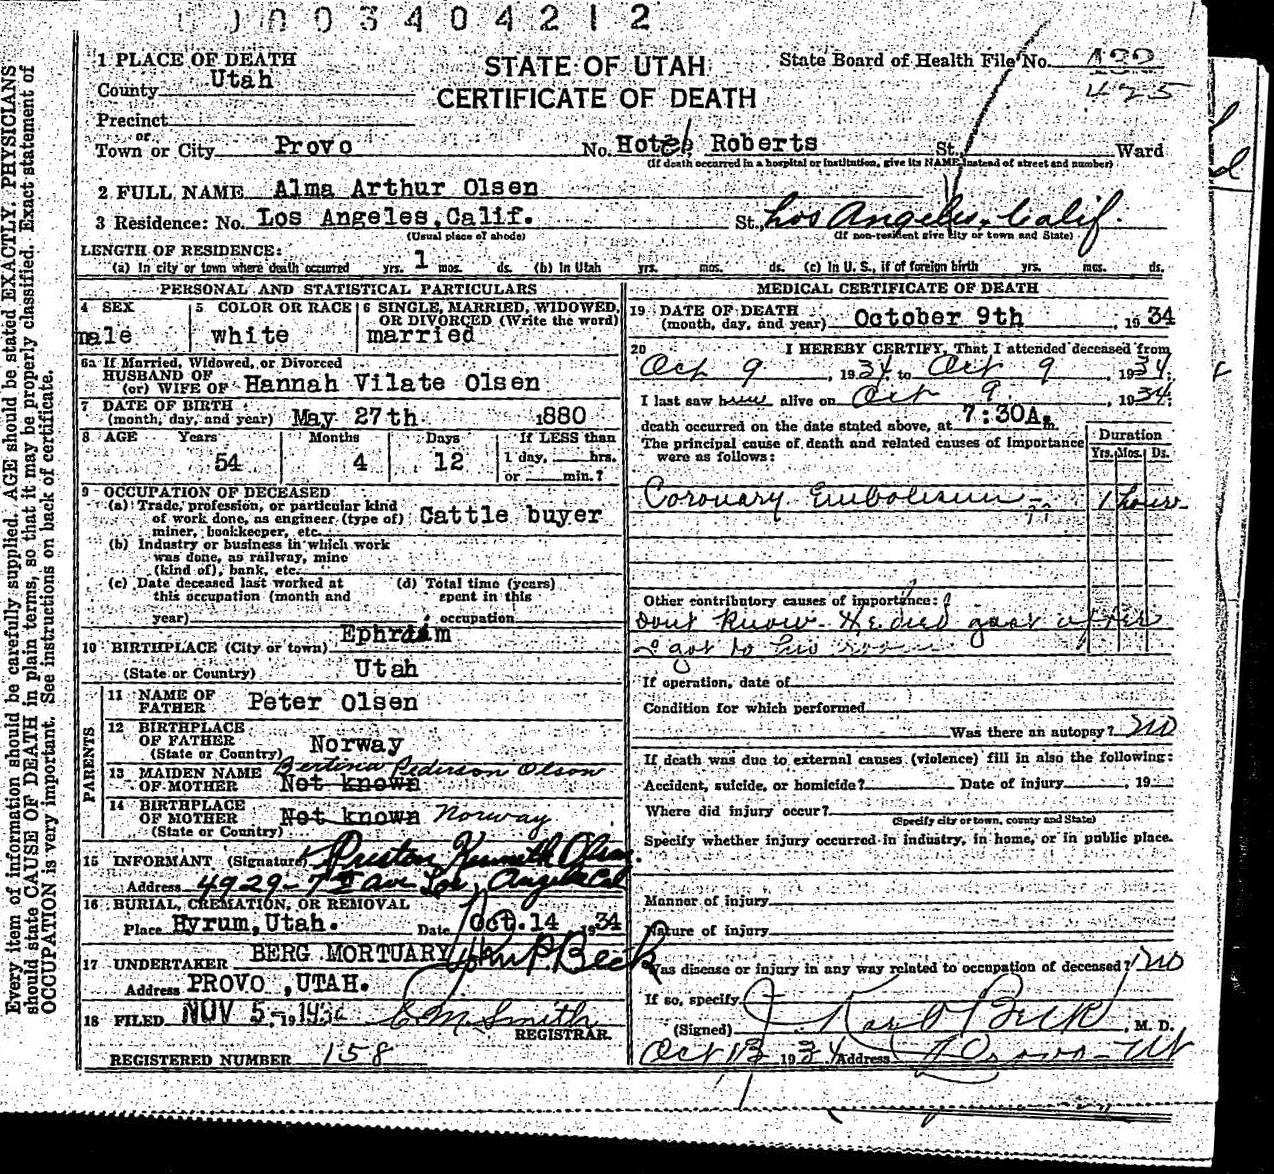 003404212
1 PLACE OF DEATH
County Utah
STATE OF UTAH
CERTIFICATE OF DEATH
State Board of Health File No.
425
Precinct
or
Town or City Provo No. Hotel Roberts St. Ward
(If death occurred in a hospital or institution, give its NAME instead of street and number)
2 FULL NAME Alma Arthur Olsen
3 Residence: No. Los Angeles, Calif. St., Los Angeles, Calif.
(Usual place of abode) (If non-resident give city or town and State)
LENGTH OF RESIDENCE:
(a) In city or town where death occurred yrs. 1 mos. ds. (b) In Utah yrs. mos. ds. (c) In U. S., if of foreign birth yrs. mos. ds.
PERSONAL AND STATISTICAL PARTICULARS
4 SEX
male
5 COLOR OR RACE
white
6 SINGLE, MARRIED, WIDOWED, OR DIVORCED (Write the word)
married
6a If Married, Widowed, or Divorced
HUSBAND OF
(or) WIFE OF Hannah Vilate Olsen
7 DATE OF BIRTH
(month, day, and year) May 27th 1880
8 AGE Years Months Days If LESS than
54 4 12 1 day, hrs.
or min.?
9 OCCUPATION OF DECEASED
(a) Trade, profession, or particular kind
of work done, as engineer (type of) Cattle buyer
miner, bookkeeper, etc.
(b) Industry or business in which work
was done, as railway, mine
(kind of), bank, etc.
(c) Date deceased last worked at (d) Total time (years)
this occupation (month and spent in this
year) occupation
10 BIRTHPLACE (City or town) Ephraim
(State or Country) Utah
PARENTS
11 NAME OF
FATHER Peter Olsen
12 BIRTHPLACE
OF FATHER Norway
(State or Country)
13 MAIDEN NAME Bertina Pederson Olson
OF MOTHER Not known
14 BIRTHPLACE
OF MOTHER Not known Norway
(State or Country)
15 INFORMANT (Signature) Preston Kenneth Olsen
Address 4929-7th Ave Los Angeles Cal
16 BURIAL, CREMATION, OR REMOVAL
Place Hyrum, Utah. Date Oct. 14 1934
17 UNDERTAKER BERG MORTUARY John P. Beck
Address PROVO, UTAH.
18 FILED NOV 5- 1934 E. M. Smith
REGISTRAR.
REGISTERED NUMBER 158
MEDICAL CERTIFICATE OF DEATH
19 DATE OF DEATH
(month, day, and year) October 9th 1934
20 I HEREBY CERTIFY, That I attended deceased from
Oct 9, 1934, to Oct 9, 1934;
I last saw him alive on Oct 9, 1934;
death occurred on the date stated above, at 7:30A.m.
The principal cause of death and related causes of importance
were as follows:
Duration
Yrs. Mos. Ds.
Coronary Embolism - 1 hour-
??
Other contributory causes of importance:
Dont know. He died just after
I got to his room
If operation, date of
Condition for which performed
Was there an autopsy? no
If death was due to external causes (violence) fill in also the following:
Accident, suicide, or homicide? Date of injury, 19
Where did injury occur?
(Specify city or town, county and State)
Specify whether injury occurred in industry, in home, or in public place.
Manner of injury
Nature of injury
Was disease or injury in any way related to occupation of deceased? no
If so, specify
(Signed) J. Karl Beck, M. D.
Oct 13 1934 Address Provo-Ut
Every item of information should be carefully supplied. AGE should be stated EXACTLY. PHYSICIANS
should state CAUSE OF DEATH in plain terms, so that it may be properly classified. Exact statement of
OCCUPATION is very important. See instructions on back of certificate.